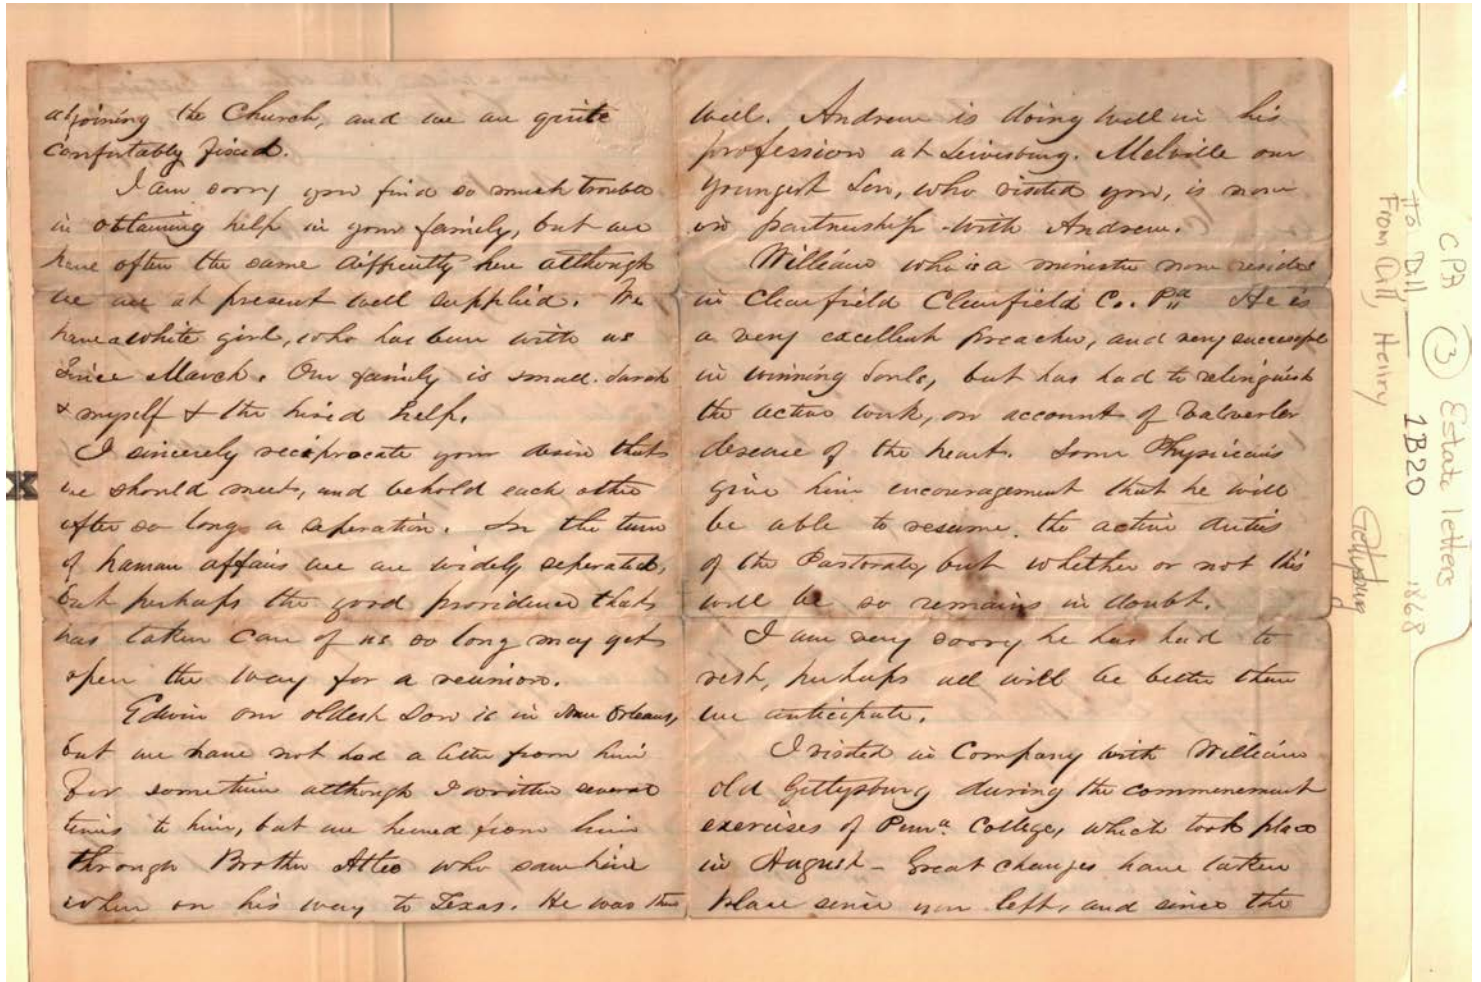 adjoining the Church, and we are quite
comfortably fixed.
I am sorry you find so much trouble
in obtaining help in your family, but we
have often the same difficulty here although
we are at present well supplied. We
have a white girl, who has been with us
Since March. Our family is small. Sarah
& myself & the hired help.
I sincerely reciprocate your desire that
we should meet, and behold each other
after so long a seperation. In the turn
of human affairs we are widely seperated,
but perhaps the good providence that
has taken care of us so long may yet
open the way for a reunion.
Edwin our oldest Son is in New Orleans,
but we have not had a letter from him
for sometime although I written several
times to him, but we heared from him
through Brother Atlee who saw him
when on his way to Texas. He was then
well. Andrew is doing well in his
profession at Lewisburg. Melville our
youngest Son, who visited you, is now
in partnership with Andrew.
William who is a minister now resides
in Clearfield Clearfield Co. Pa He is
a very excellent preacher, and very successful
in winning Souls, but has had to relinquish
the active work, on account of
disease of the heart. Some Physicians
give him encouragement that he will
be able to resume the active duties
of the Pastorate, but whether or not this
will be so remains in doubt.
I am very sorry he has had to
rest, perhaps all will be better than
we anticipate.
I visited in Company with William
old Gettysburg during the commencement
exercises of Penna. College, which took place
in August - Great changes have taken
place since you left, and since the
CPB (3) Estate letters
To Dill 1B20 1868
From Dill, Henry
Gettysburg